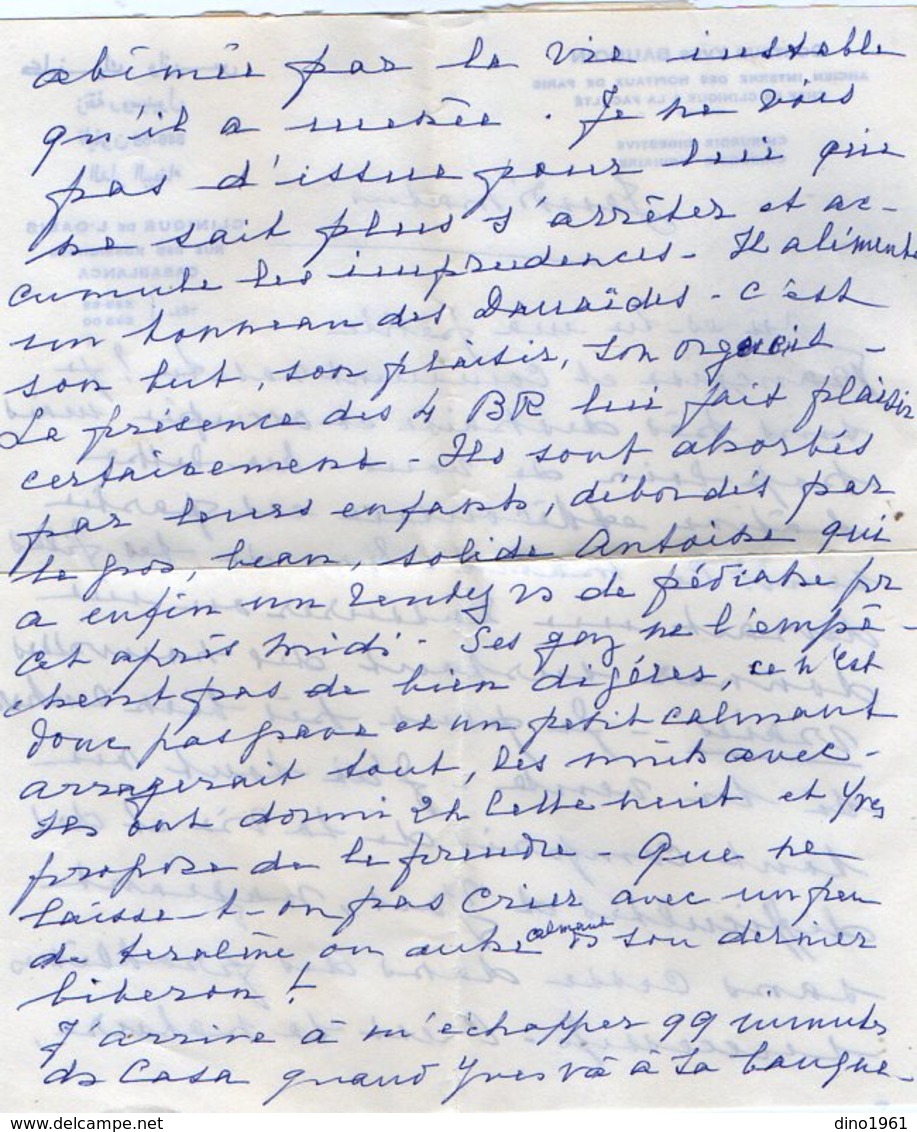 abîmée par la vie instable
qu'il a menée. Je ne vois
pas d'issue pour lui qui
ne sait plus s'arrêter et ac-
cumule les imprudences - Il alimente
un tonneau des Danaïdes - C'est
son but, son plaisir, son orgueil -
La présence des 4 BR lui fait plaisir
certainement - Ils sont absorbés
par leurs enfants, débordés par
le gros, beau, solide Antoine qui
a enfin un rendez vs de pédiatre pr
cet après midi - Ses gaz ne l'empê-
chent pas de bien digérer, ce n'est
donc pas grave et un petit calmant
arrangerait tout, les nuits avec -
Ils ont dormi 2h cette nuit et Yves
propose de le prendre - Que ne
laisse t-on pas crier avec un peu
de teralène, ou autre calmant ds son dernier
biberon !
J'arrive à m'échapper 99 minutes
de Casa quand Yves va à la banque -
CLINIQUE DE L'OASIS
CASABLANCA
dino1961